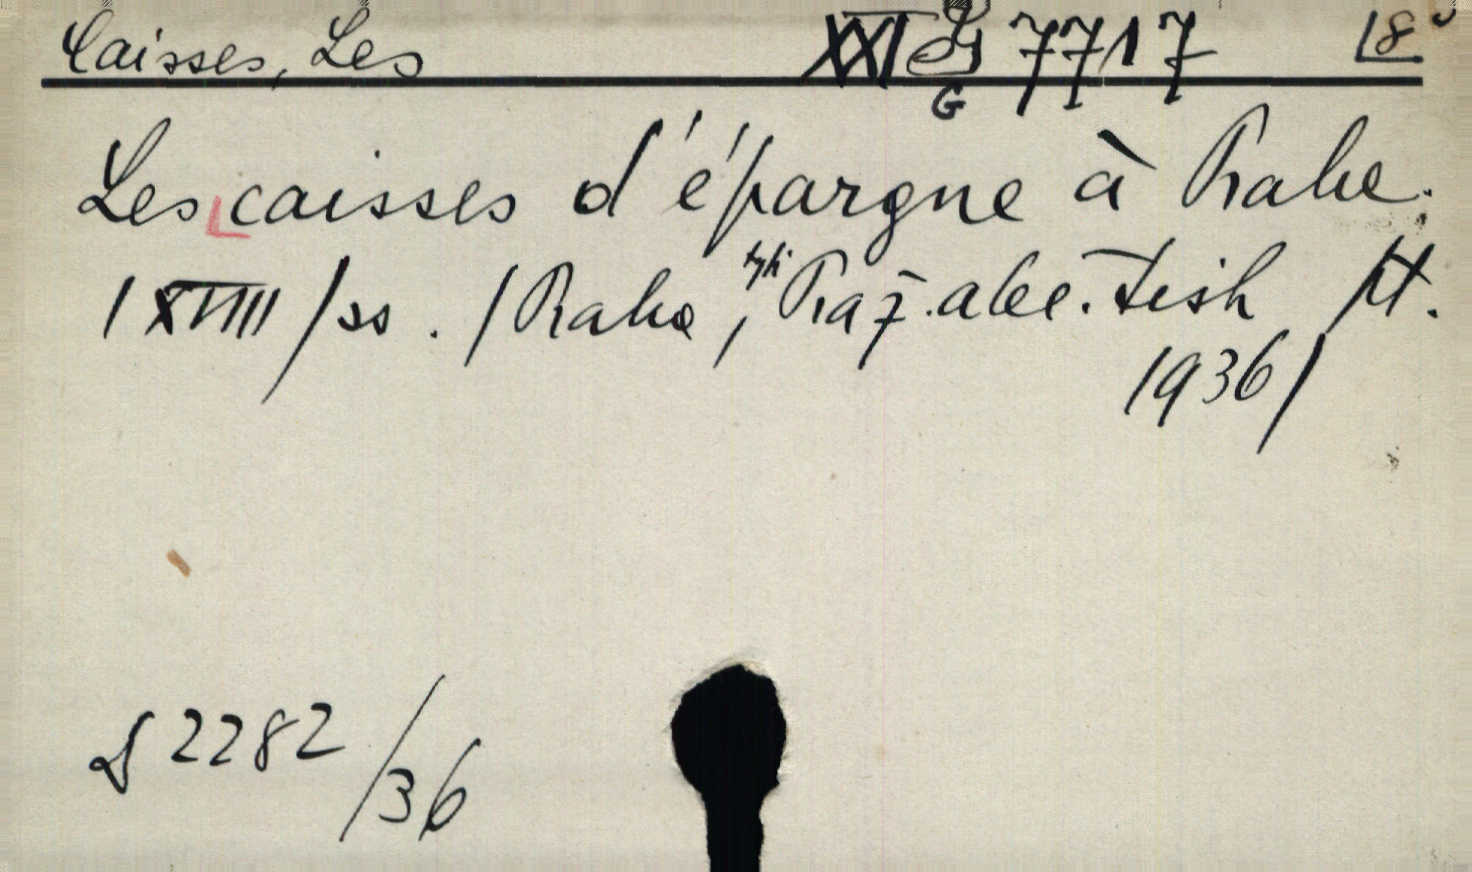 Caisses, Les XXI G 7717 8°
G
Les caisses d'épargne à Prahe.
/XVIII/ ss. /Praha, Praž. akc. tisk
1936/
S 2282/36